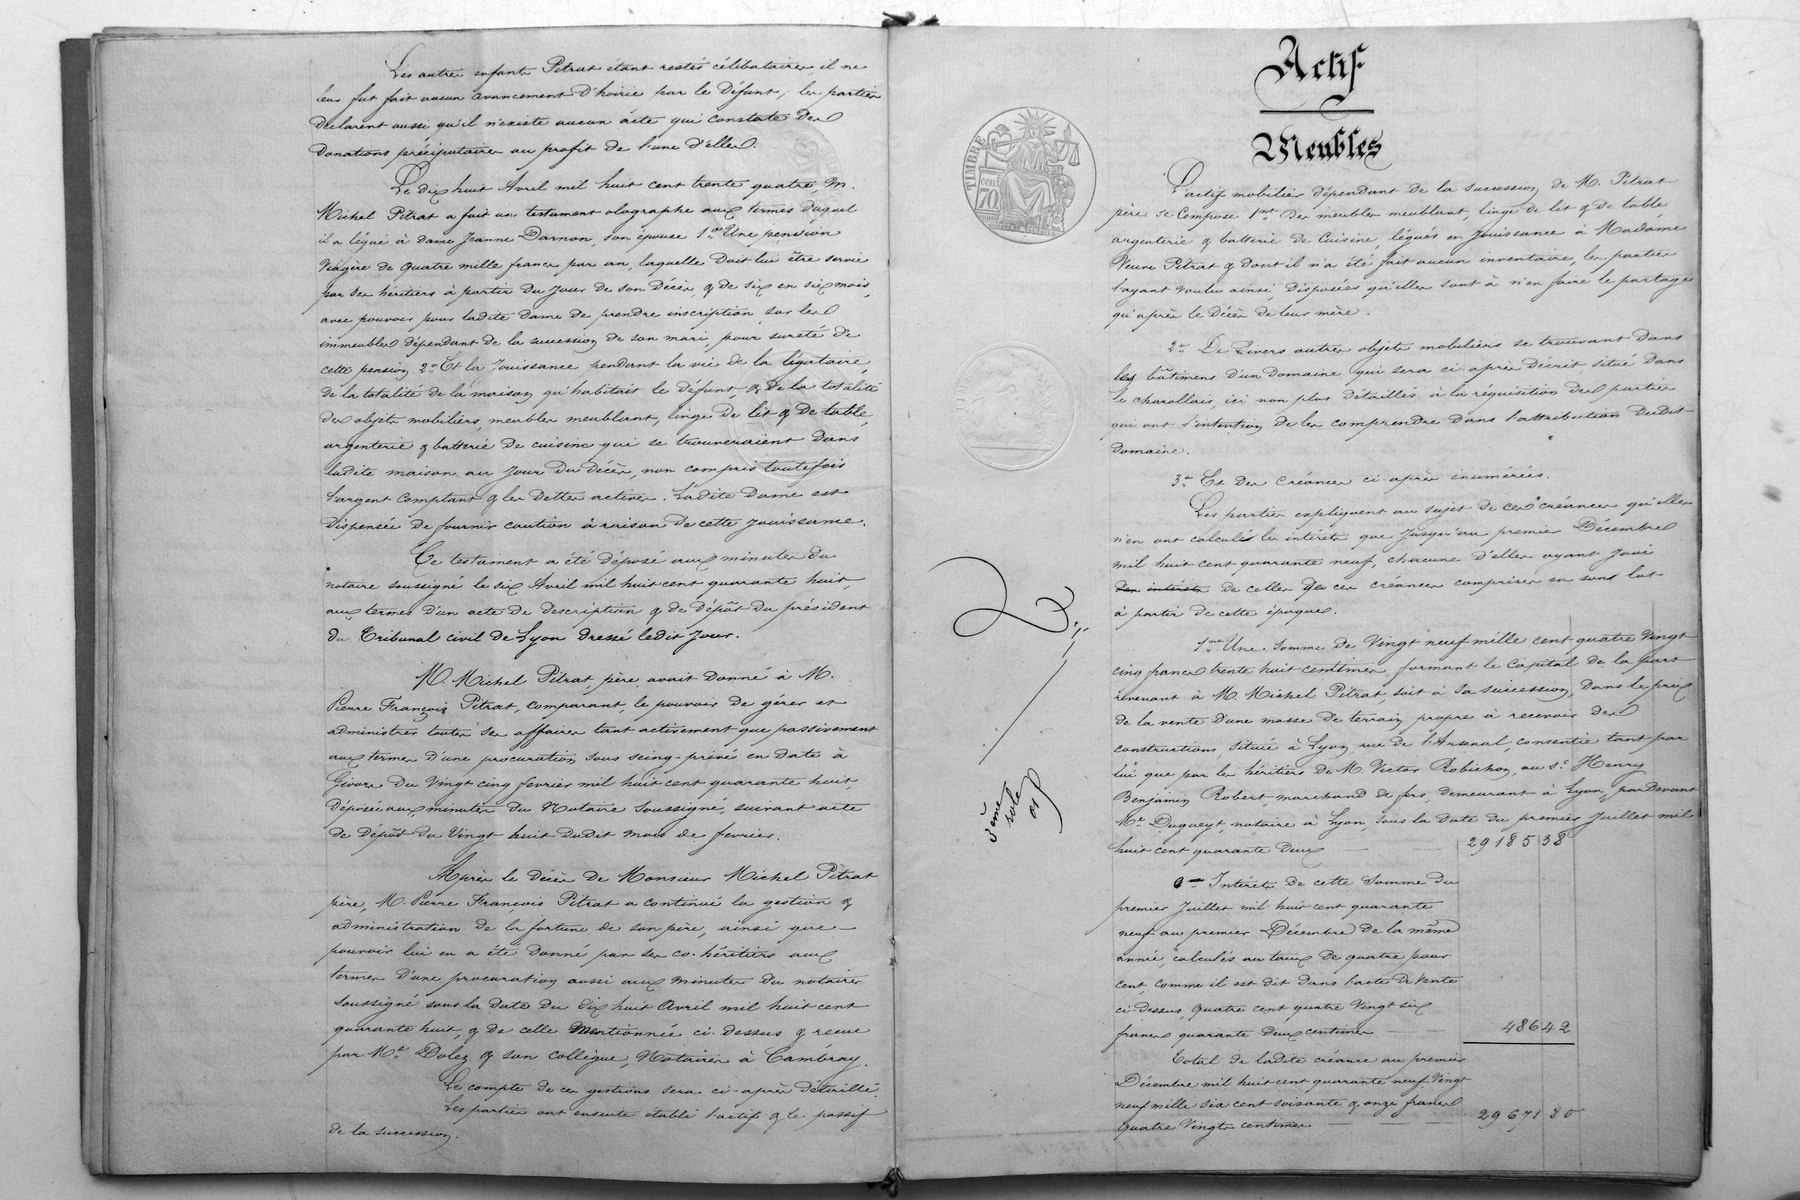 Les autres enfants Pitrat étant restés célibataires, il ne
leur fut fait aucun avancement d'hoirie par le Défunt; les parties
Déclarent aussi qu'il n'existe aucun acte qui constate des
Donations préciputaires au profit de l'une d'elles.
Le dix huit Avril mil huit cent trente quatre, M.
Michel Pitrat a fait un testament olographe aux termes duquel
il a légué à dame Jeanne Darnon, son épouse 1.° Une pension
Viagère de quatre mille francs par an, laquelle doit lui être servie
par ses héritiers à partir du jour de son Décès, & de six en six mois,
avec pouvoir pour ladite dame de prendre inscription, sur les
immeubles dépendant de la succession de son mari, pour sureté de
cette pension, 2.° Et la Jouissance pendant la vie de la légataire,
de la totalité de la maison qu'habitait le défunt, & de la totalité
des objets mobiliers, meubles meublant, linge de lit & de table,
argenterie & batterie de cuisine qui se trouveraient dans
ladite maison au jour du décès, non compris toutefois
l'argent comptant & les dettes actives. Ladite Dame est
Dispensée de fournir caution à raison de cette jouissance.
Ce testament a été déposé aux minutes du
notaire soussigné le six Avril mil huit cent quarante huit,
aux termes d'un acte de description & de dépôt du président
du Tribunal civil de Lyon dressé ledit jour.
M. Michel Pitrat, père, avait donné à M.
Pierre François Pitrat, comparant, le pouvoir de gérer et
administrer toutes ses affaires tant activement que passivement
aux termes d'une procuration sous seing-privé en date à
Givors du Vingt cinq fevrier mil huit cent quarante huit,
déposée aux minutes du Notaire soussigné, suivant acte
de dépôt du Vingt huit dudit mois de fevrier.
Après le décès de Monsieur Michel Pitrat
père, M. Pierre François Pitrat a continué la gestion &
administration de la fortune de son père, ainsi que
pouvoir lui en a été donné par ses co-héritiers aux
termes d'une procuration aussi aux minutes du notaire
soussigné sous la date du dix huit Avril mil huit cent
quarante huit, & de celle mentionnée ci-dessus & reçue
par M.e Dolez & son collègue, Notaires à Cambray.
Le compte de ces gestions sera ci-après détaillé.
Les parties ont ensuite établi l'actif & le passif
de la succession.
TIMBRE
cen 70
3ème
rôle
Actif
Meubles
L'actif mobilier dépendant de la succession de M. Pitrat
père se Compose 1.nt Des meubles meublant, linge de lit & de table
argenterie & batterie de Cuisine, légués en Jouissance à Madame
Veuve Pitrat & dont il n'a été fait aucun inventaire, les parties
l'ayant voulu ainsi, Disposées qu'elles sont à n'en faire le partage
qu'après le décès de leur mère.
2.° De Divers autres objets mobiliers se trouvant dans
les bâtimens d'un Domaine qui sera ci-après décrit situé dans
le charollais, ici non plus détaillés à la réquisition des parties
qui ont l'intention de les comprendre dans l'attribution dudit
Domaine.
3.° Et Des Créances ci-après énumérées.
Les parties expliquent au sujet de ces créances qu'elles
n'en ont calculés les intérêts que Jusqu'au premier Décembre
mil huit cent quarante neuf, chacune d'elles ayant Joui
des intérêts de celles de ces créances comprises en sont lot
à partir de cette époque.
1.nt Une Somme de Vingt neuf mille cent quatre Vingt
cinq francs trente huit centimes, formant le Capital de la part
revenant à M. Michel Pitrat, soit à sa succession, Dans le prix
de la vente d'une masse de terrain propre à recevoir des
constructions située à Lyon, rue de l'Arsenal, consentie tant par
lui que par les héritiers de M. Victor Robichon, au s.r Henry
Benjamin Robert, marchand de fers, demeurant à Lyon, pardevant
M.e Dugueyt, notaire à Lyon, sous la date du premier Juillet mil
huit cent quarante deux 29185 38
Intérêts de cette Somme du
premier Juillet mil huit cent quarante
neuf au premier Décembre de la même
année, calculés au taux de quatre pour
cent, comme il est dit dans l'acte de Vente
ci-dessus, quatre cent quatre Vingt six
francs quarante deux centimes 486 42
Total de ladite créance au premier
Décembre mil huit cent quarante neuf, Vingt
neuf mille six cent soixante & onze francs
quatre Vingts centimes 29671 80